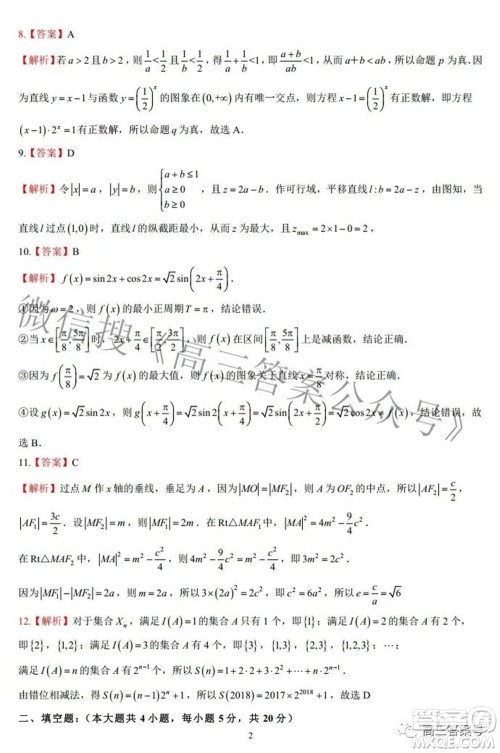 8.【答案】A
【解析】若 a＞2 且 b＞2，则 1/a＜1/2 且 1/b＜1/2，得 1/a+1/b＜1，即 (a+b)/ab＜1，从而 a＋b＜ab，所以命题 p 为真. 因
为直线 y=x−1 与函数 y=(1/2)^x 的图象在 (0,+∞) 内有唯一交点，则方程 x−1=(1/2)^x 有正数解，即方程
(x−1)·2^x=1 有正数解，所以命题 q 为真，故选 A.
9.【答案】D
【解析】令|x|=a，|y|=b，则 {a+b≤1 a≥0 b≥0，且 z=2a−b. 作可行域，平移直线 l:b=2a−z，由图知，当
直线 l 过点(1,0)时，直线 l 的纵截距最小，从而 z 为最大，且 z_max=2×1−0=2，
10.【答案】B
【解析】f(x)=sin2x+cos2x=√2sin(2x+π/4).
①因为 ω=2，则 f(x) 的最小正周期 T=π，结论错误.
②当 x∈[π/8,5π/8]时，2x+π/4∈[π/2,3π/2]，则 f(x) 在区间[π/8,5π/8]上是减函数，结论正确.
③因为 f(π/8)=√2 为最大值，则 f(x) 的图象关于直线 x=π/8 对称，结论正确.
④设 g(x)=√2sin2x，则 g(x+π/4)=√2sin2(x+π/4)=√2sin(2x+π/2)=√2cos2x≠f(x)，结论错误，故
选 B.
11.【答案】C
【解析】过点 M 作 x 轴的垂线，垂足为 A，因为|MO|=|MF₂|，则 A 为 OF₂ 的中点，所以|AF₂|=c/2，
|AF₁|=3c/2. 设|MF₂|=m，则|MF₁|=2m. 在 Rt△MAF₁ 中，|MA|²=4m²−9/4c².
在 Rt△MAF₂ 中，|MA|²=m²−c²/4，则 4m²−9/4c²=m²−c²/4，即 3m²=2c².
因为|MF₁|−|MF₂|=2a，则 m=2a，所以 3×(2a)²=2c²，即 c²=6a²，所以 e=c/a=√6
12.【解析】对于集合 Xₙ，满足 I(A)=1 的集合 A 只有 1 个，即{1}；满足 I(A)=2 的集合 A 有 2 个，
即{2}，{1,2}；满足 I(A)=3 的集合 A 有 4 个，即{3}，{1,3}，{2,3}，{1,2,3}；…；
满足 I(A)=n 的集合 A 有 2^(n−1) 个，所以 S(n)=1+2·2+3·2²+…+n·2^(n−1).
由错位相减法，得 S(n)=(n−1)2ⁿ+1，所以 S(2018)=2017×2^2018+1，故选 D
二、填空题：（本大题共 4 小题，每小题 5 分，共 20 分）
2
微信搜《高三答案公众号》
高三答案号